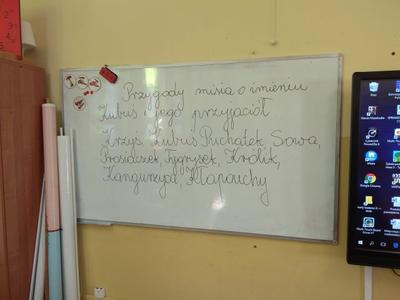 Przygody misia o imieniu
Kubuś i jego przyjaciół
Krzyś, Kubuś Puchatek Sowa,
Prosiaczek, Tygrysek, Królik,
Kangurzyca, Kłapouchy
Google Chrome